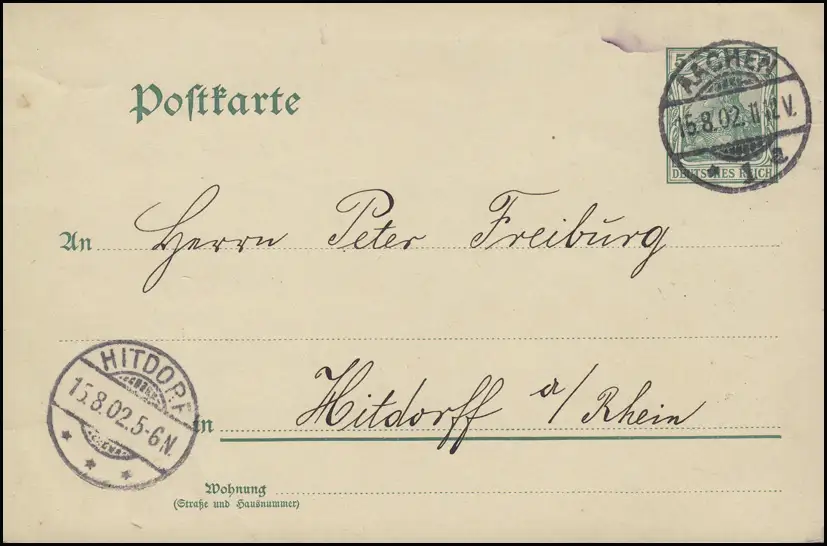 5
AACHEN
15.8.02. 11-12 V.
* 1 a
DEUTSCHES REICH
Poſtkarte
An Herrn Peter Freiburg
HITDORF
15.8.02. 5-6 N.
* * *
in Hitdorff a/Rhein
Wohnung
(Straße und Hausnummer)